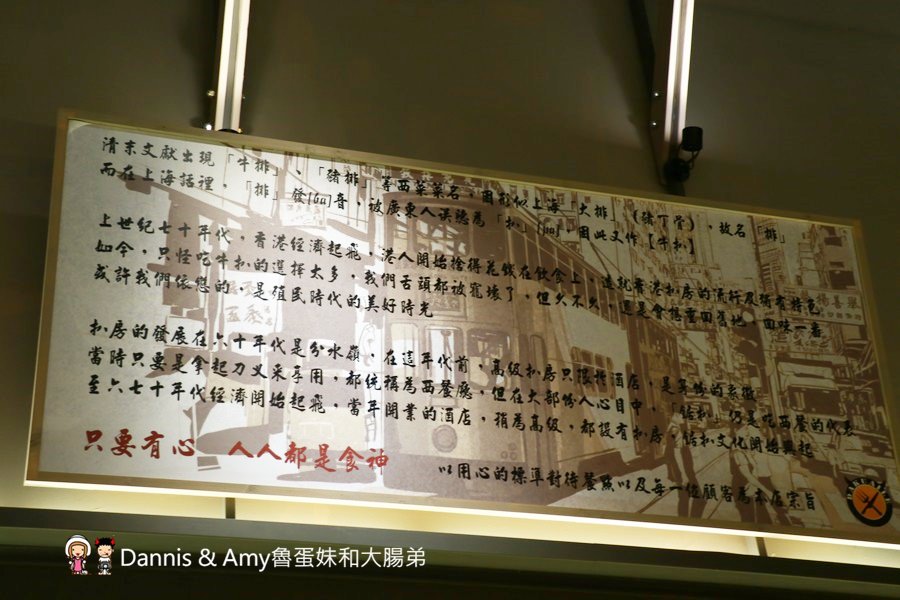 清末文獻出現「牛排」、「豬排」等西菜菜名,因形似上海「大排」(豬丁骨),故名「排」
而在上海話裡,「排」發[ba]音,被廣東人误聽為「扒」[pa],因此又作【牛扒】
上世紀七十年代,香港經濟起飛,港人開始捨得花錢在飲食上,造就香港扒房的流行及稱有特色
如今,只怪吃牛扒的選擇太多,我們舌頭都被寵壞了,但久不久,還是會想重回舊地,回味一番
或許我們依戀的,是殖民時代的美好時光
扒房的發展在六十年代是分水嶺,在這年代前,高級扒房只限於酒店,是身份的象徵
當時只要是拿起刀叉來享用,都統稱為西餐廳,但在大部份人心目中,「鋸扒」仍是吃西餐的代表
至六七十年代經濟開始起飛,當年開業的酒店,稍為高級,都設有扒房,鋸扒文化開始興起
只要有心 人人都是食神
以用心的標準對待餐點以及每一位顧客為本店宗旨
Dannis & Amy魯蛋妹和大腸弟